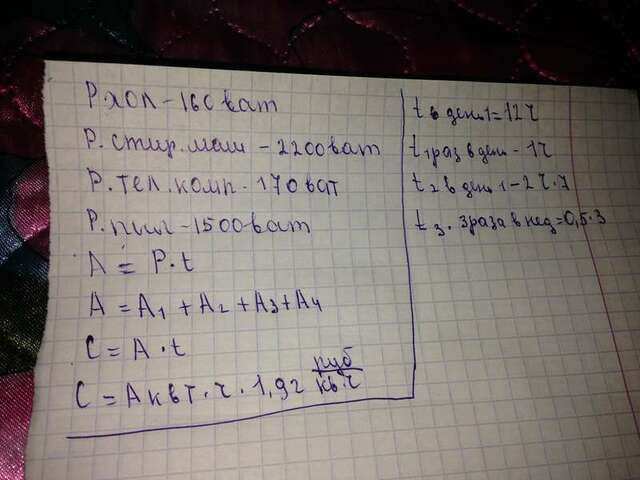 Р.хол - 160 ват
Р. стир. маш - 2200 ват
Р. тел. комп. - 170 ват
Р. - 1500 ват
A = P·t
A = A1 + A2 + A3 + A4
C = A·t
C = A квт·ч · 1,92 руб/кв.ч
t в день 1 = 12 ч
t1 раз в день - 1ч
t2 в день 1 - 2ч·7
t3. 3 раза в нед = 0,5·3